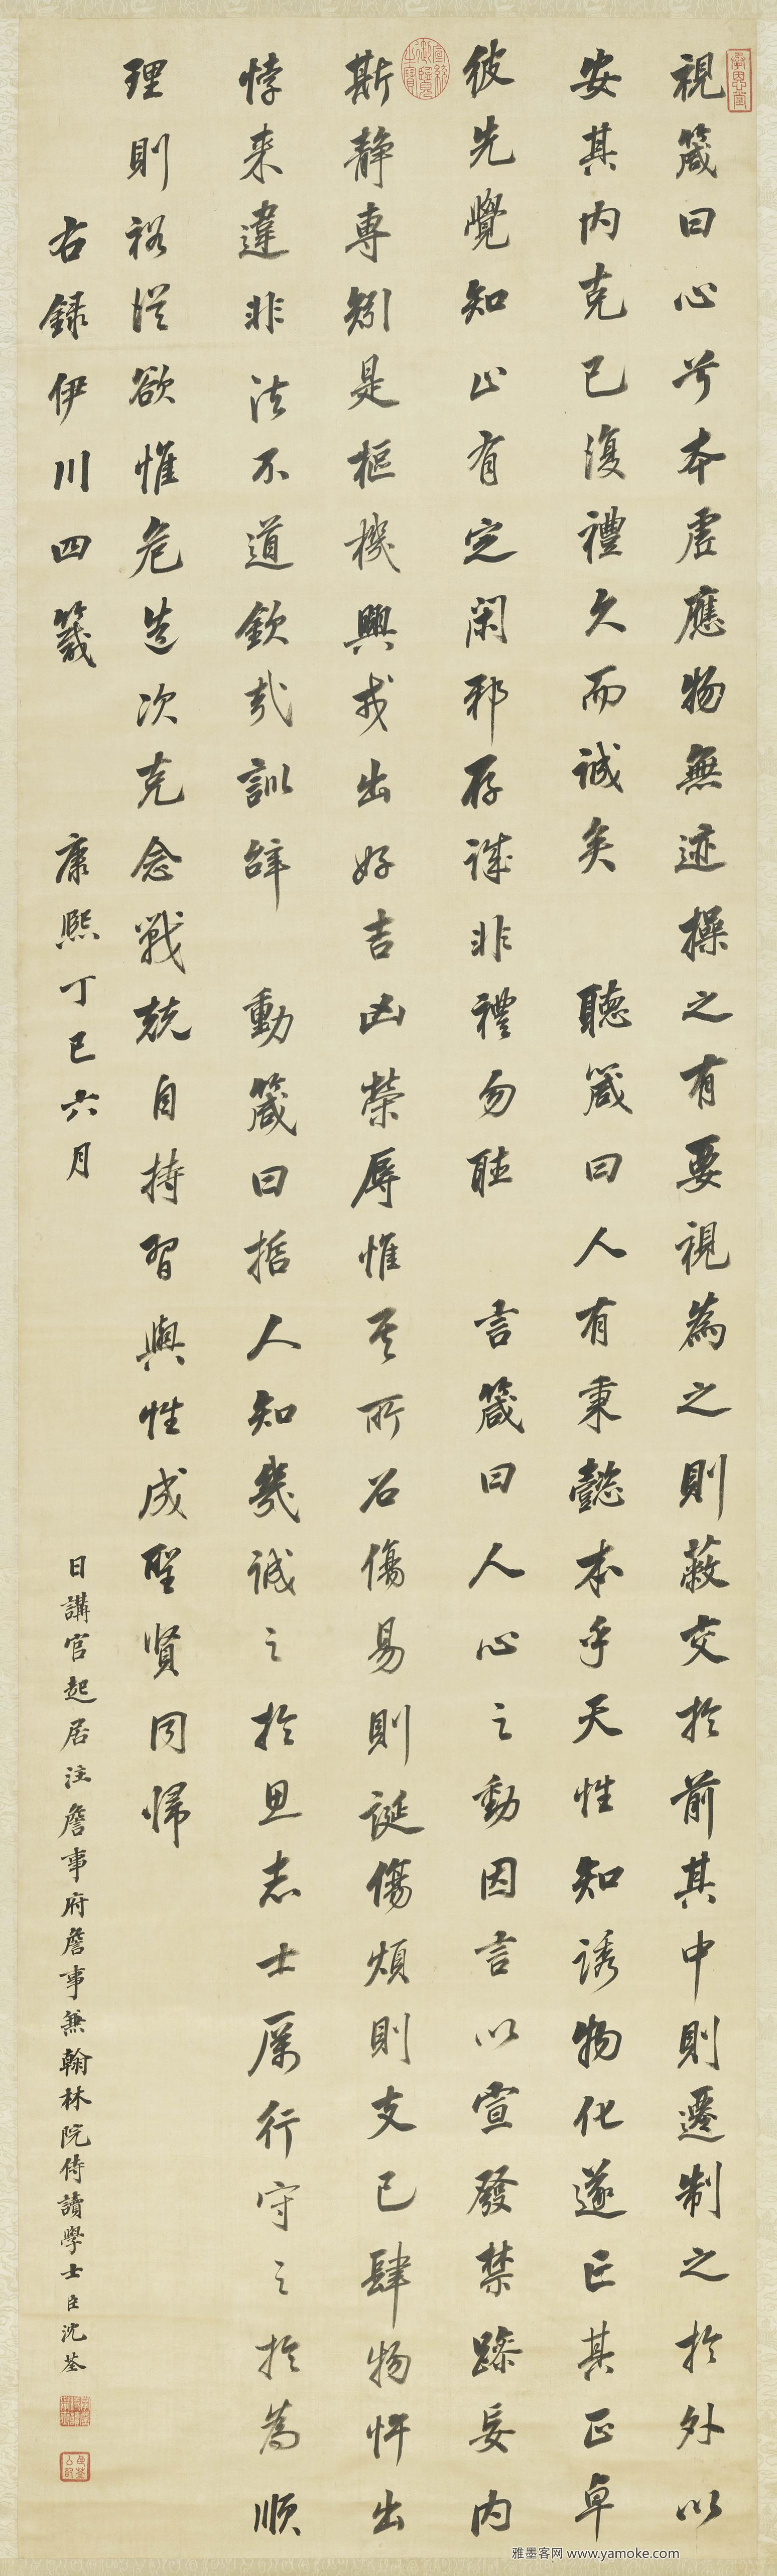 視箴曰心兮本虛應物無迹操之有要視為之則蔽交於前其中則遷制之於外以
安其內克己復禮久而誠矣 聽箴曰人有秉懿本乎天性知誘物化遂亡其正卓
彼先覺知止有定閑邪存誠非禮勿聽 言箴曰人心之動因言以宣發禁躁妄內
斯静專矧是樞機興戎出好吉凶榮辱惟其所召傷易則誕傷煩則支己肆物忤出
悖来違非法不道欽哉訓辭 動箴曰哲人知幾誠之於思志士厲行守之於為順
理則裕從欲惟危造次克念戰兢自持習與性成聖賢同歸
右録伊川四箴 康熙丁巳六月 日講官起居注詹事府詹事兼翰林院侍讀學士臣沈荃
宣統御覽之寶
雅墨客网 www.yamoke.com